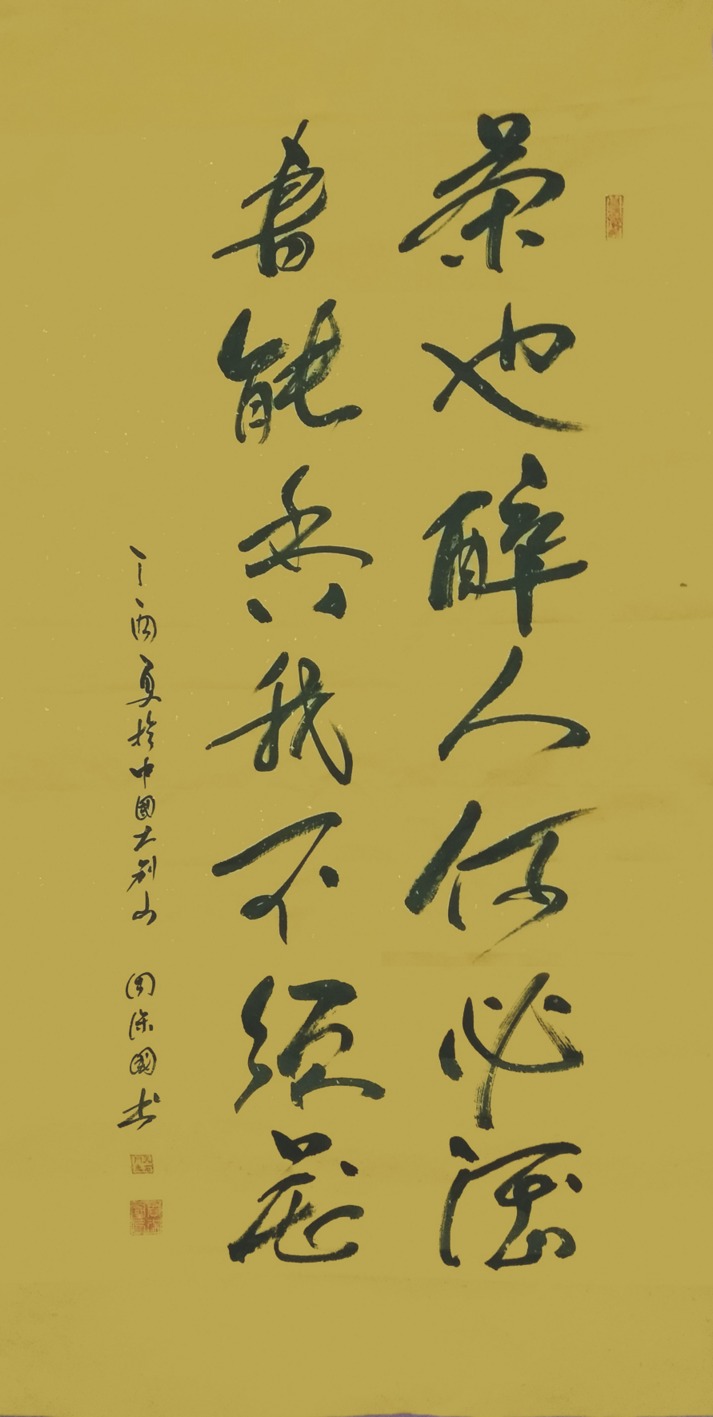 茶也醉人何必酒
書能香我不須花
丁酉夏於中國大别山 周保國书